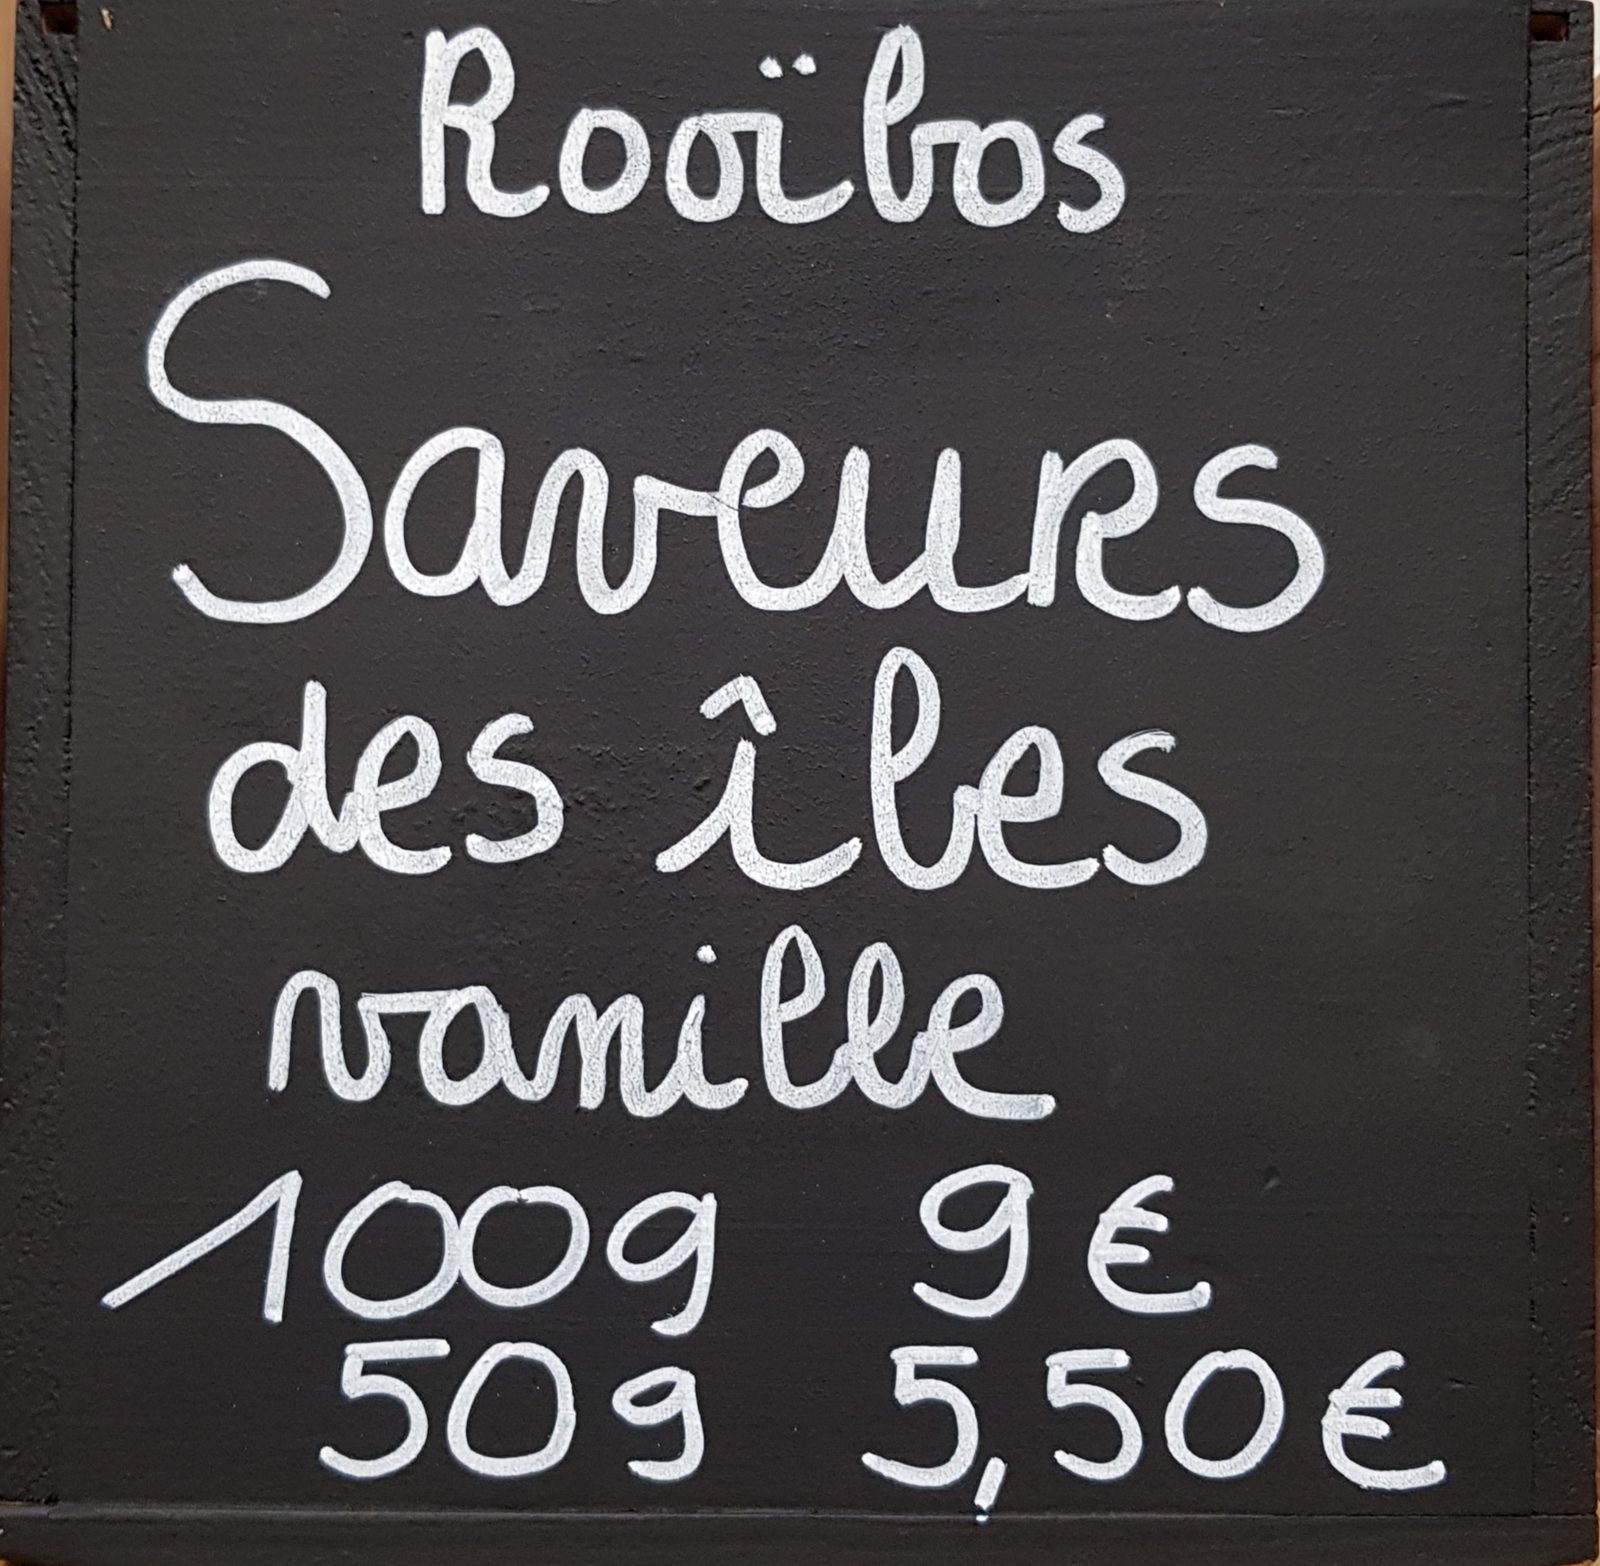 Rooïbos
Saveurs
des îles
vanille
100g 9€
50g 5,50€